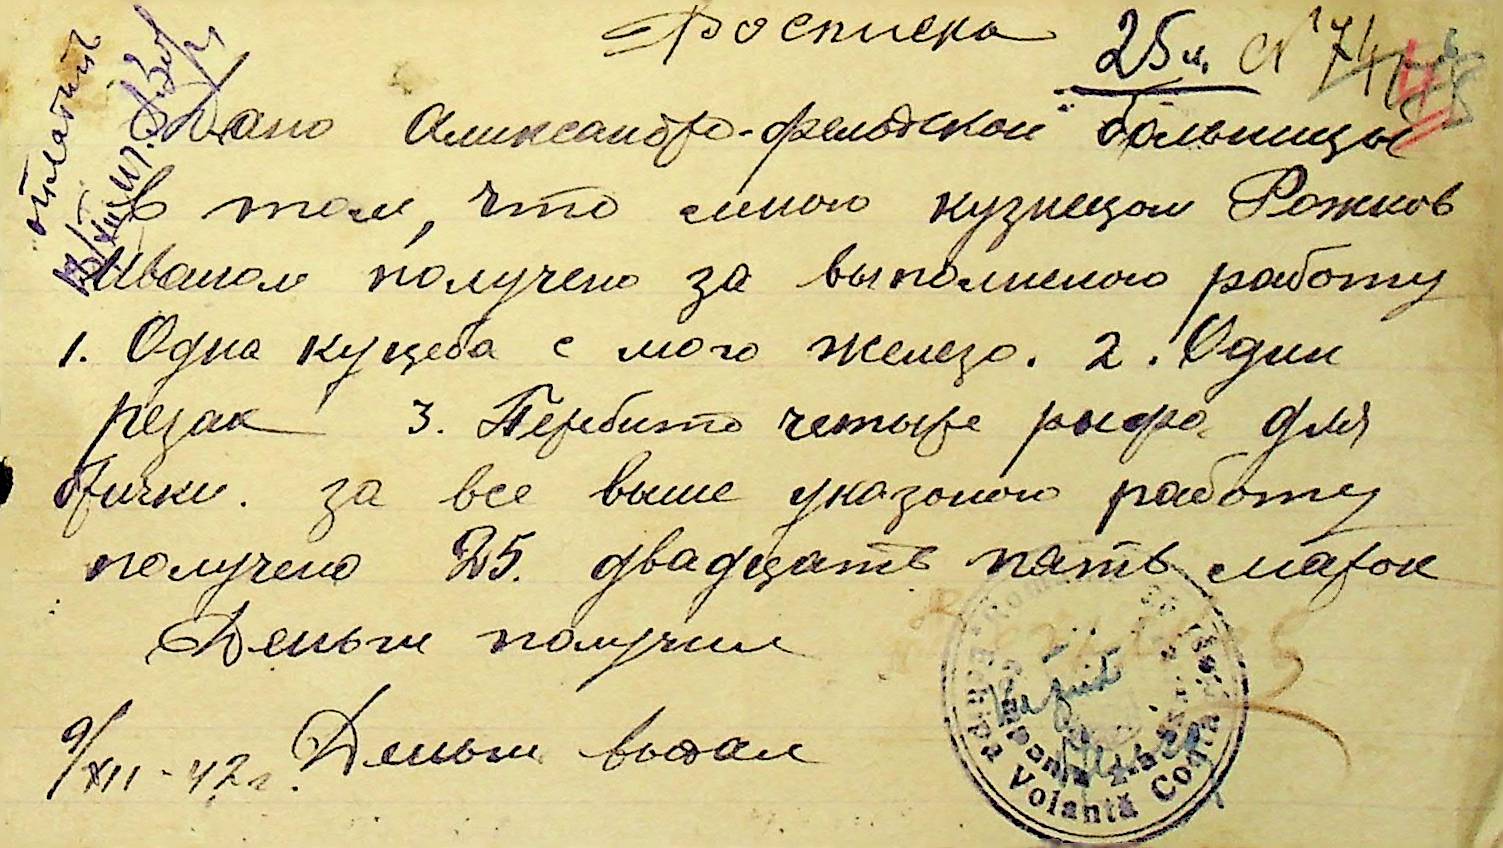 Росписка
25 м. N 74
Дано Александро-фельдской больницы
в том, что мною кузнецом Рожков
Иваном получено за выполненою работу
1. Одна куцеба с мого железо. 2. Один
резак 3. Перебито четыре рыфа для
брички. за все выше указоною работу
получено 25. двадцать пять марок
Деньги получил
9/XII-42 г. Деньги выдал
отплатить
Volantă